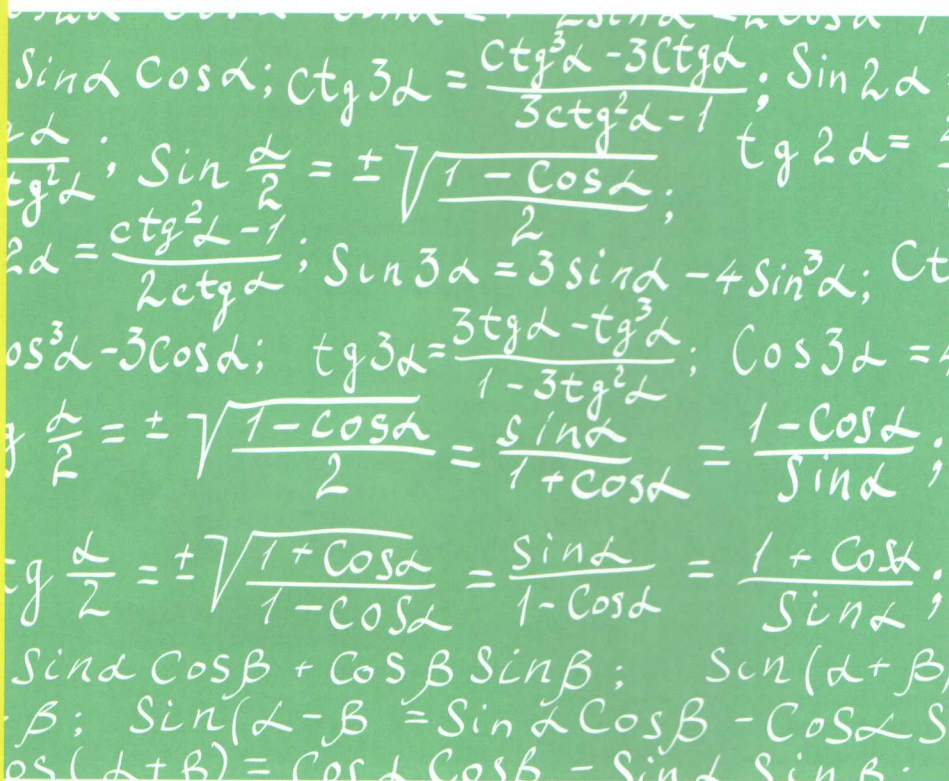 Sinα Cosα; ctg3α = (ctg³α - 3Ctgα)/(3ctg²α - 1); Sin2α
2α/tg²α; Sin α/2 = ±√((1 - Cosα)/2); tg2α =
2α = (ctg²α - 1)/(2ctgα); Sin3α = 3sinα - 4Sin³α; Ct
os³α - 3Cosα; tg3α = (3tgα - tg³α)/(1 - 3tg²α); Cos3α =
g α/2 = ±√((1 - cosα)/2) = sinα/(1 + cosα) = (1 - Cosα)/Sinα;
g α/2 = ±√((1 + Cosα)/(1 - Cosα)) = Sinα/(1 - Cosα) = (1 + Cosα)/Sinα;
Sinα Cosβ + Cosβ Sinβ; Sin(α + β)
β; Sin(α - β = Sinα Cosβ - Cosα S
os(α + β) = Cosα Cosβ - Sinα Sinβ;